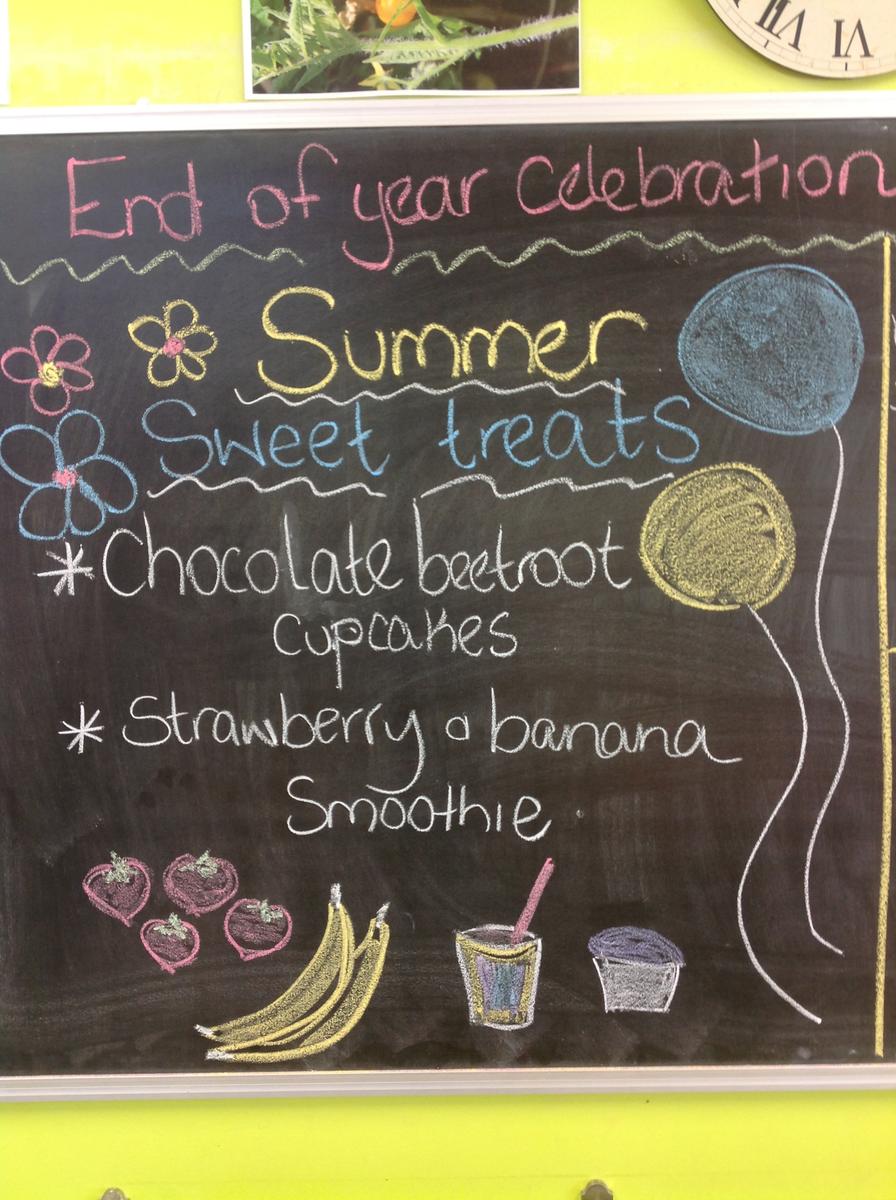 VII VI
End of year Celebration
Summer
Sweet treats
* Chocolate beetroot
cupcakes
* Strawberry & banana
Smoothie